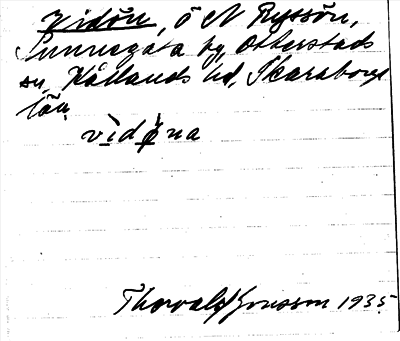 Vidön, ö N Ryssön,
Sunnegåta by, Otterstads
sn, Kållands hd, Skaraborgs
län
vìdø̀na
Thorvald Jonsson 1935